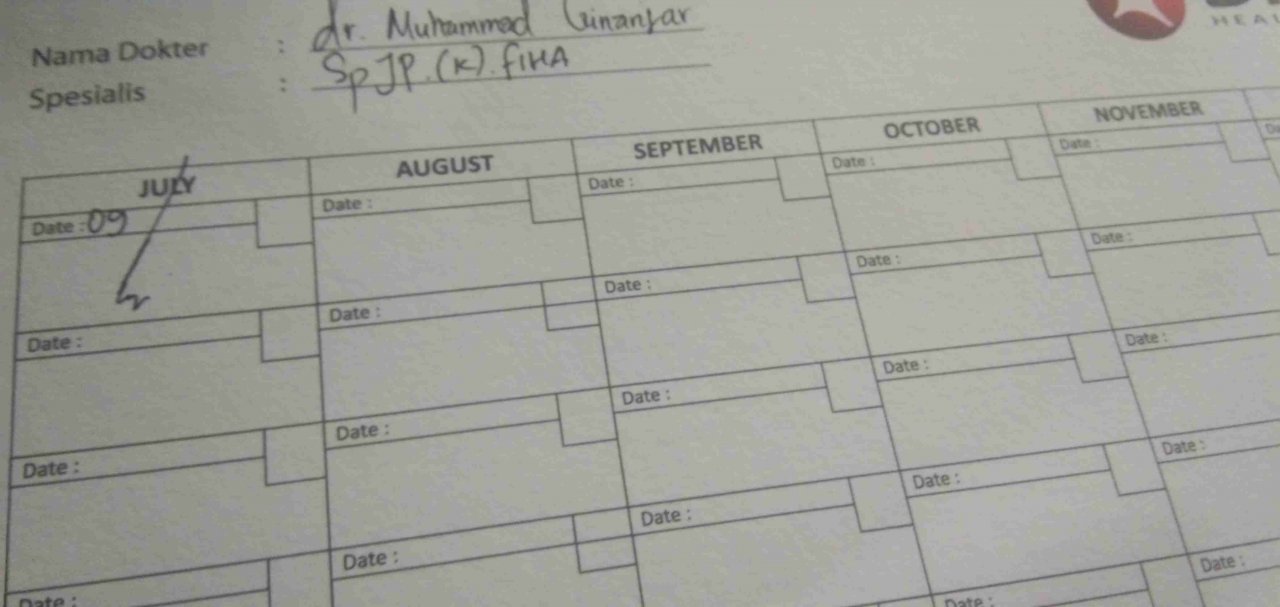 Nama Dokter : dr. Muhammad Ginanjar
Spesialis : SpJP.(K).FIHA
JULY AUGUST SEPTEMBER OCTOBER NOVEMBER
Date : 09 Date : Date : Date : Date :
Date : Date : Date : Date : Date :
Date : Date : Date : Date : Date :
Date : Date : Date : Date : Date :
Date : Date : Date :